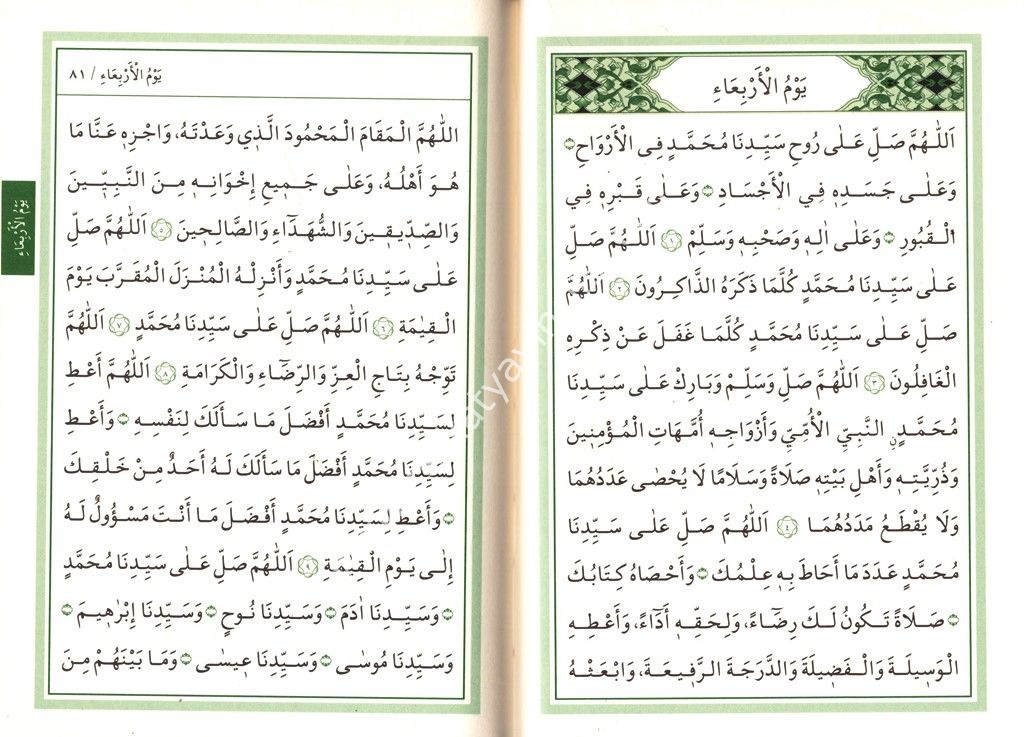 يَوْمُ الْأَرْبِعَاءِ
اَللّٰهُمَّ صَلِّ عَلٰى رُوحِ سَيِّدِنَا مُحَمَّدٍ فِى الْأَرْوَاحِ
وَعَلٰى جَسَدِهٖ فِي الْأَجْسَادِ وَعَلٰى قَبْرِهٖ فِي
الْقُبُورِ وَعَلٰى اٰلِهٖ وَصَحْبِهٖ وَسَلِّمْ ١ اَللّٰهُمَّ صَلِّ
عَلٰى سَيِّدِنَا مُحَمَّدٍ كُلَّمَا ذَكَرَهُ الذَّاكِرُونَ ٢ اَللّٰهُمَّ
صَلِّ عَلٰى سَيِّدِنَا مُحَمَّدٍ كُلَّمَا غَفَلَ عَنْ ذِكْرِهِ
الْغَافِلُونَ ٣ اَللّٰهُمَّ صَلِّ وَسَلِّمْ وَبَارِكْ عَلٰى سَيِّدِنَا
مُحَمَّدٍنِ النَّبِيِّ الْأُمِّيِّ وَأَزْوَاجِهٖ أُمَّهَاتِ الْمُؤْمِنِينَ
وَذُرِّيَّتِهٖ وَأَهْلِ بَيْتِهٖ صَلَاةً وَسَلَامًا لَا يُحْصٰى عَدَدُهُمَا
وَلَا يُقْطَعُ مَدَدُهُمَا ٤ اَللّٰهُمَّ صَلِّ عَلٰى سَيِّدِنَا
مُحَمَّدٍ عَدَدَ مَا أَحَاطَ بِهٖ عِلْمُكَ وَأَحْصَاهُ كِتَابُكَ
صَلَاةً تَكُونُ لَكَ رِضَاءً، وَلِحَقِّهٖ أَدَاءً، وَأَعْطِهِ
الْوَسِيلَةَ وَالْفَضِيلَةَ وَالدَّرَجَةَ الرَّفِيعَةَ، وَابْعَثْهُ
يَوْمُ الْأَرْبِعَاءِ / ٨١
اللّٰهُمَّ الْمَقَامَ الْمَحْمُودَ الَّذِي وَعَدْتَهُ، وَاجْزِهٖ عَنَّا مَا
هُوَ أَهْلُهُ، وَعَلٰى جَمِيعِ إِخْوَانِهٖ مِنَ النَّبِيِّينَ
وَالصِّدِّيقِينَ وَالشُّهَدَاءِ وَالصَّالِحِينَ ٥ اَللّٰهُمَّ صَلِّ
عَلٰى سَيِّدِنَا مُحَمَّدٍ وَأَنْزِلْهُ الْمُنْزَلَ الْمُقَرَّبَ يَوْمَ
الْقِيٰمَةِ ٦ اَللّٰهُمَّ صَلِّ عَلٰى سَيِّدِنَا مُحَمَّدٍ ٧ اَللّٰهُمَّ
تَوِّجْهُ بِتَاجِ الْعِزِّ وَالرِّضَاءِ وَالْكَرَامَةِ ٨ اَللّٰهُمَّ أَعْطِ
لِسَيِّدِنَا مُحَمَّدٍ أَفْضَلَ مَا سَأَلَكَ لِنَفْسِهٖ وَأَعْطِ
لِسَيِّدِنَا مُحَمَّدٍ أَفْضَلَ مَا سَأَلَكَ لَهُ أَحَدٌ مِنْ خَلْقِكَ
وَأَعْطِ لِسَيِّدِنَا مُحَمَّدٍ أَفْضَلَ مَا أَنْتَ مَسْؤُولٌ لَهُ
إِلٰى يَوْمِ الْقِيٰمَةِ ٩ اَللّٰهُمَّ صَلِّ عَلٰى سَيِّدِنَا مُحَمَّدٍ
وَسَيِّدِنَا اٰدَمَ وَسَيِّدِنَا نُوحٍ وَسَيِّدِنَا إِبْرٰهِيمَ
وَسَيِّدِنَا مُوسٰى وَسَيِّدِنَا عِيسٰى وَمَا بَيْنَهُمْ مِنَ
يَوْمُ الْأَرْبِعَاءِ